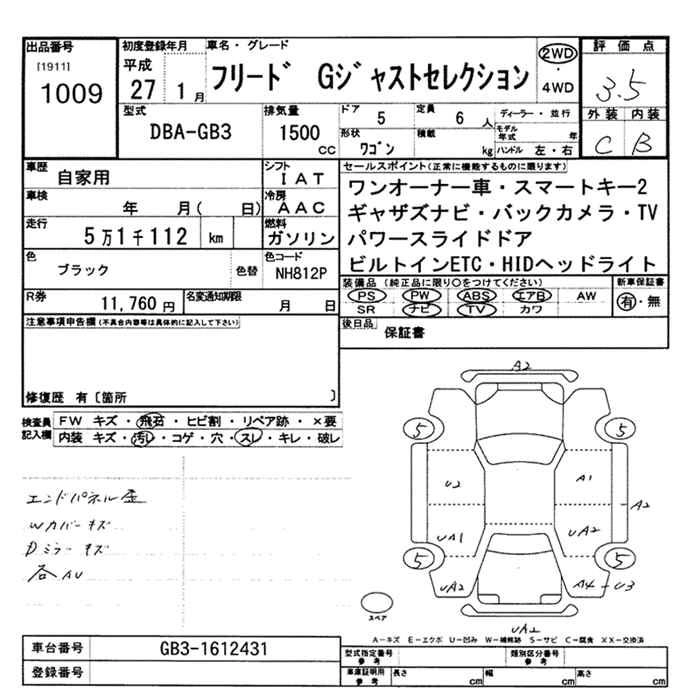 出品番号 初度登録年月 車名・グレード 2WD 評価点
[1911] 平成 フリード Gジャストセレクション ・ 3.5
1009 27 1月 4WD
型式 排気量 ドア 定員 ディーラー・並行 外装 内装
DBA-GB3 1500 CC 5 6人 モデル年式 年 C B
形状 積載 ワゴン kg ハンドル 左・右
車歴 シフト セールスポイント(正常に機能するものに限ります)
自家用 IAT ワンオーナー車・スマートキー2
車検 冷房
年 月( 日) AAC ギャザズナビ・バックカメラ・TV
走行 燃料
5万1千112 km ガソリン パワースライドドア
色 色コード
ブラック 色替 NH812P ビルトインETC・HIDヘッドライト
R券 名変通知期限 装備品(純正品に限り○をつけてください) 新車保証書
11,760円 月 日 PS PW ABS エアB AW 有・無
SR ナビ TV カワ
注意事項申告欄(不具合内容等は具体的に記入して下さい) 後日品 保証書
修復歴 有〔箇所 〕
検査員記入欄 FW キズ・飛石・ヒビ割・リペア跡・×要
内装 キズ・汚レ・コゲ・穴・スレ・キレ・破レ
エンドパネル歪
Wカバーキズ
Dミラーキズ
各AU
A2
5 5
U2 A1
A2
UA1 UA2
5 5
UA2 A4-U3
スペア
UA2
A-キズ E-エクボ U-凹み W-補修跡 S-サビ C-腐食 XX-交換済
車台番号 GB3-1612431 型式指定番号 参考 類別区分番号 参考
登録番号 車庫証明用 参考 長さ cm 幅 cm 高さ cm